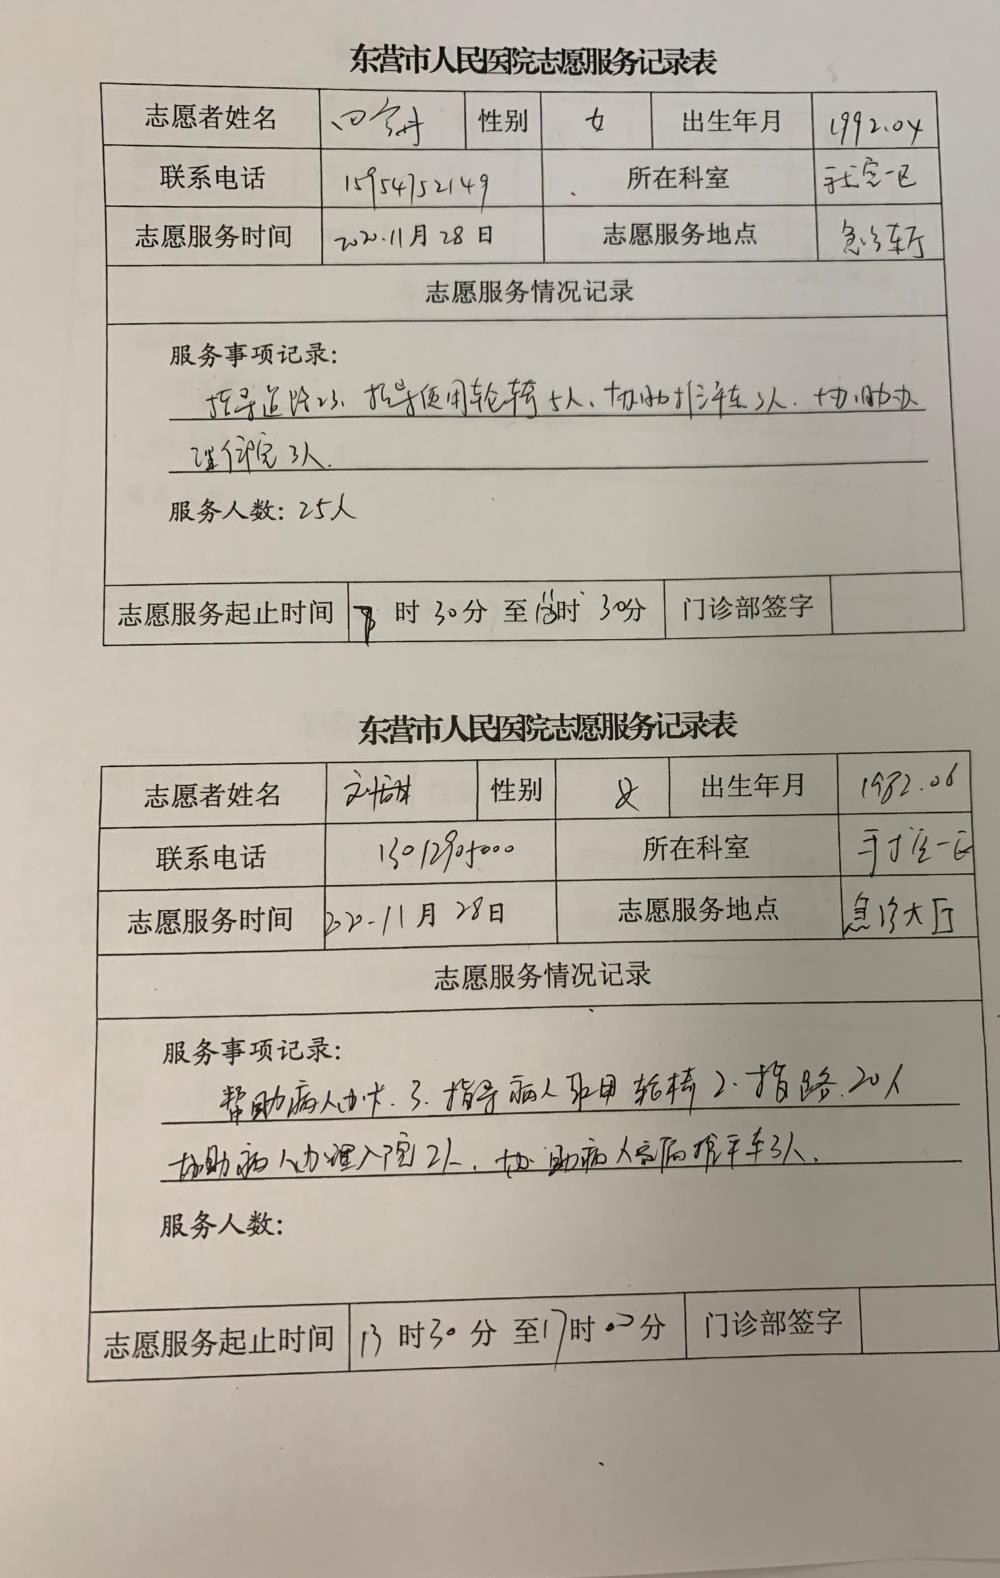 东营市人民医院志愿服务记录表
志愿者姓名 性别 女 出生年月 1992.04
联系电话 15954752149 所在科室 手术室一区
志愿服务时间 2020.11月28日 志愿服务地点 急诊大厅
志愿服务情况记录
服务事项记录:
指导道路23、指导使用轮椅5人、协助推平车3人、协助办
理住院3人.
服务人数: 25人
志愿服务起止时间 时30分 至 时30分 门诊部签字
东营市人民医院志愿服务记录表
志愿者姓名 性别 女 出生年月 1982.06
联系电话 13012905000 所在科室 手术室一区
志愿服务时间 2020.11月28日 志愿服务地点 急诊大厅
志愿服务情况记录
服务事项记录:
帮助病人办卡.3.指导病人取用轮椅2.指路.20人
协助病人办理入院2人.协助病人家属推平车3人.
服务人数:
志愿服务起止时间 13时30分 至17时00分 门诊部签字